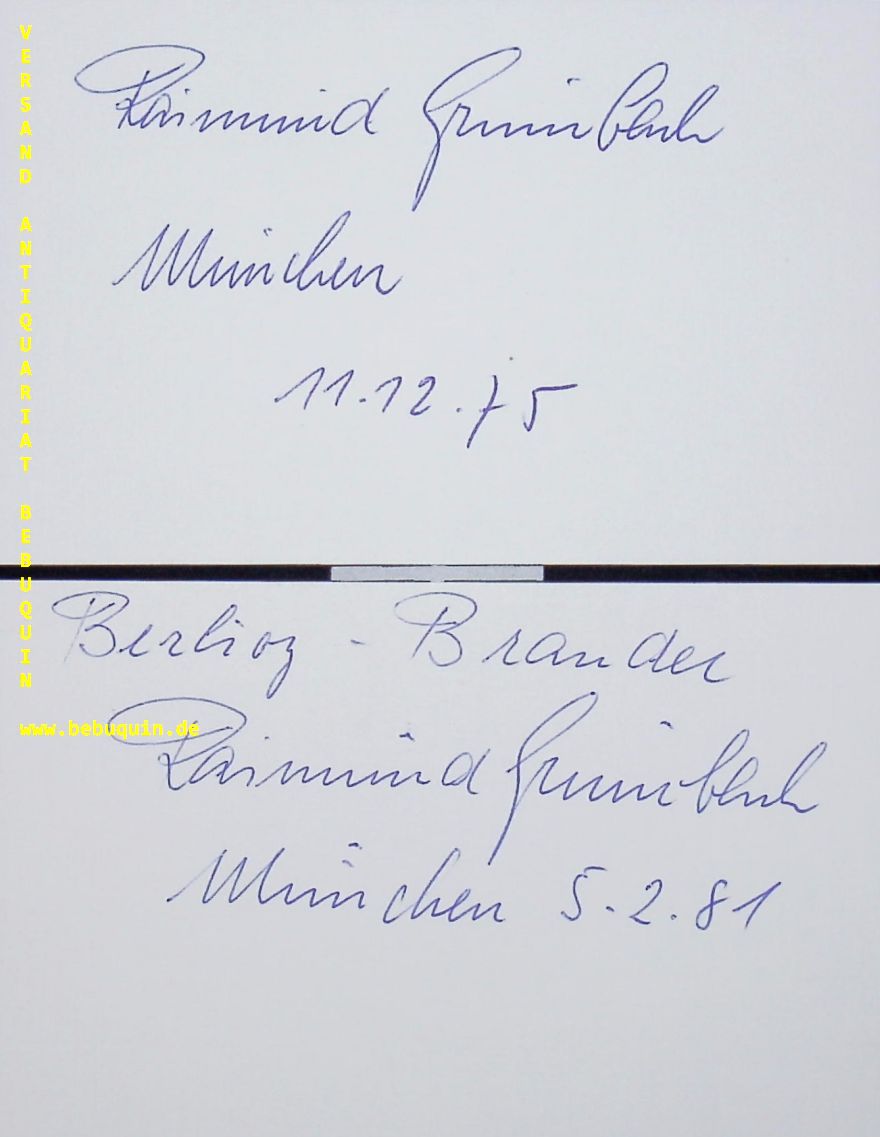 VERSAND ANTIQUARIAT BEBUQUIN
www.bebuquin.de
Raimund Grumbach
München
11.12.75
Berlioz - Brander
Raimund Grumbach
München 5.2.81